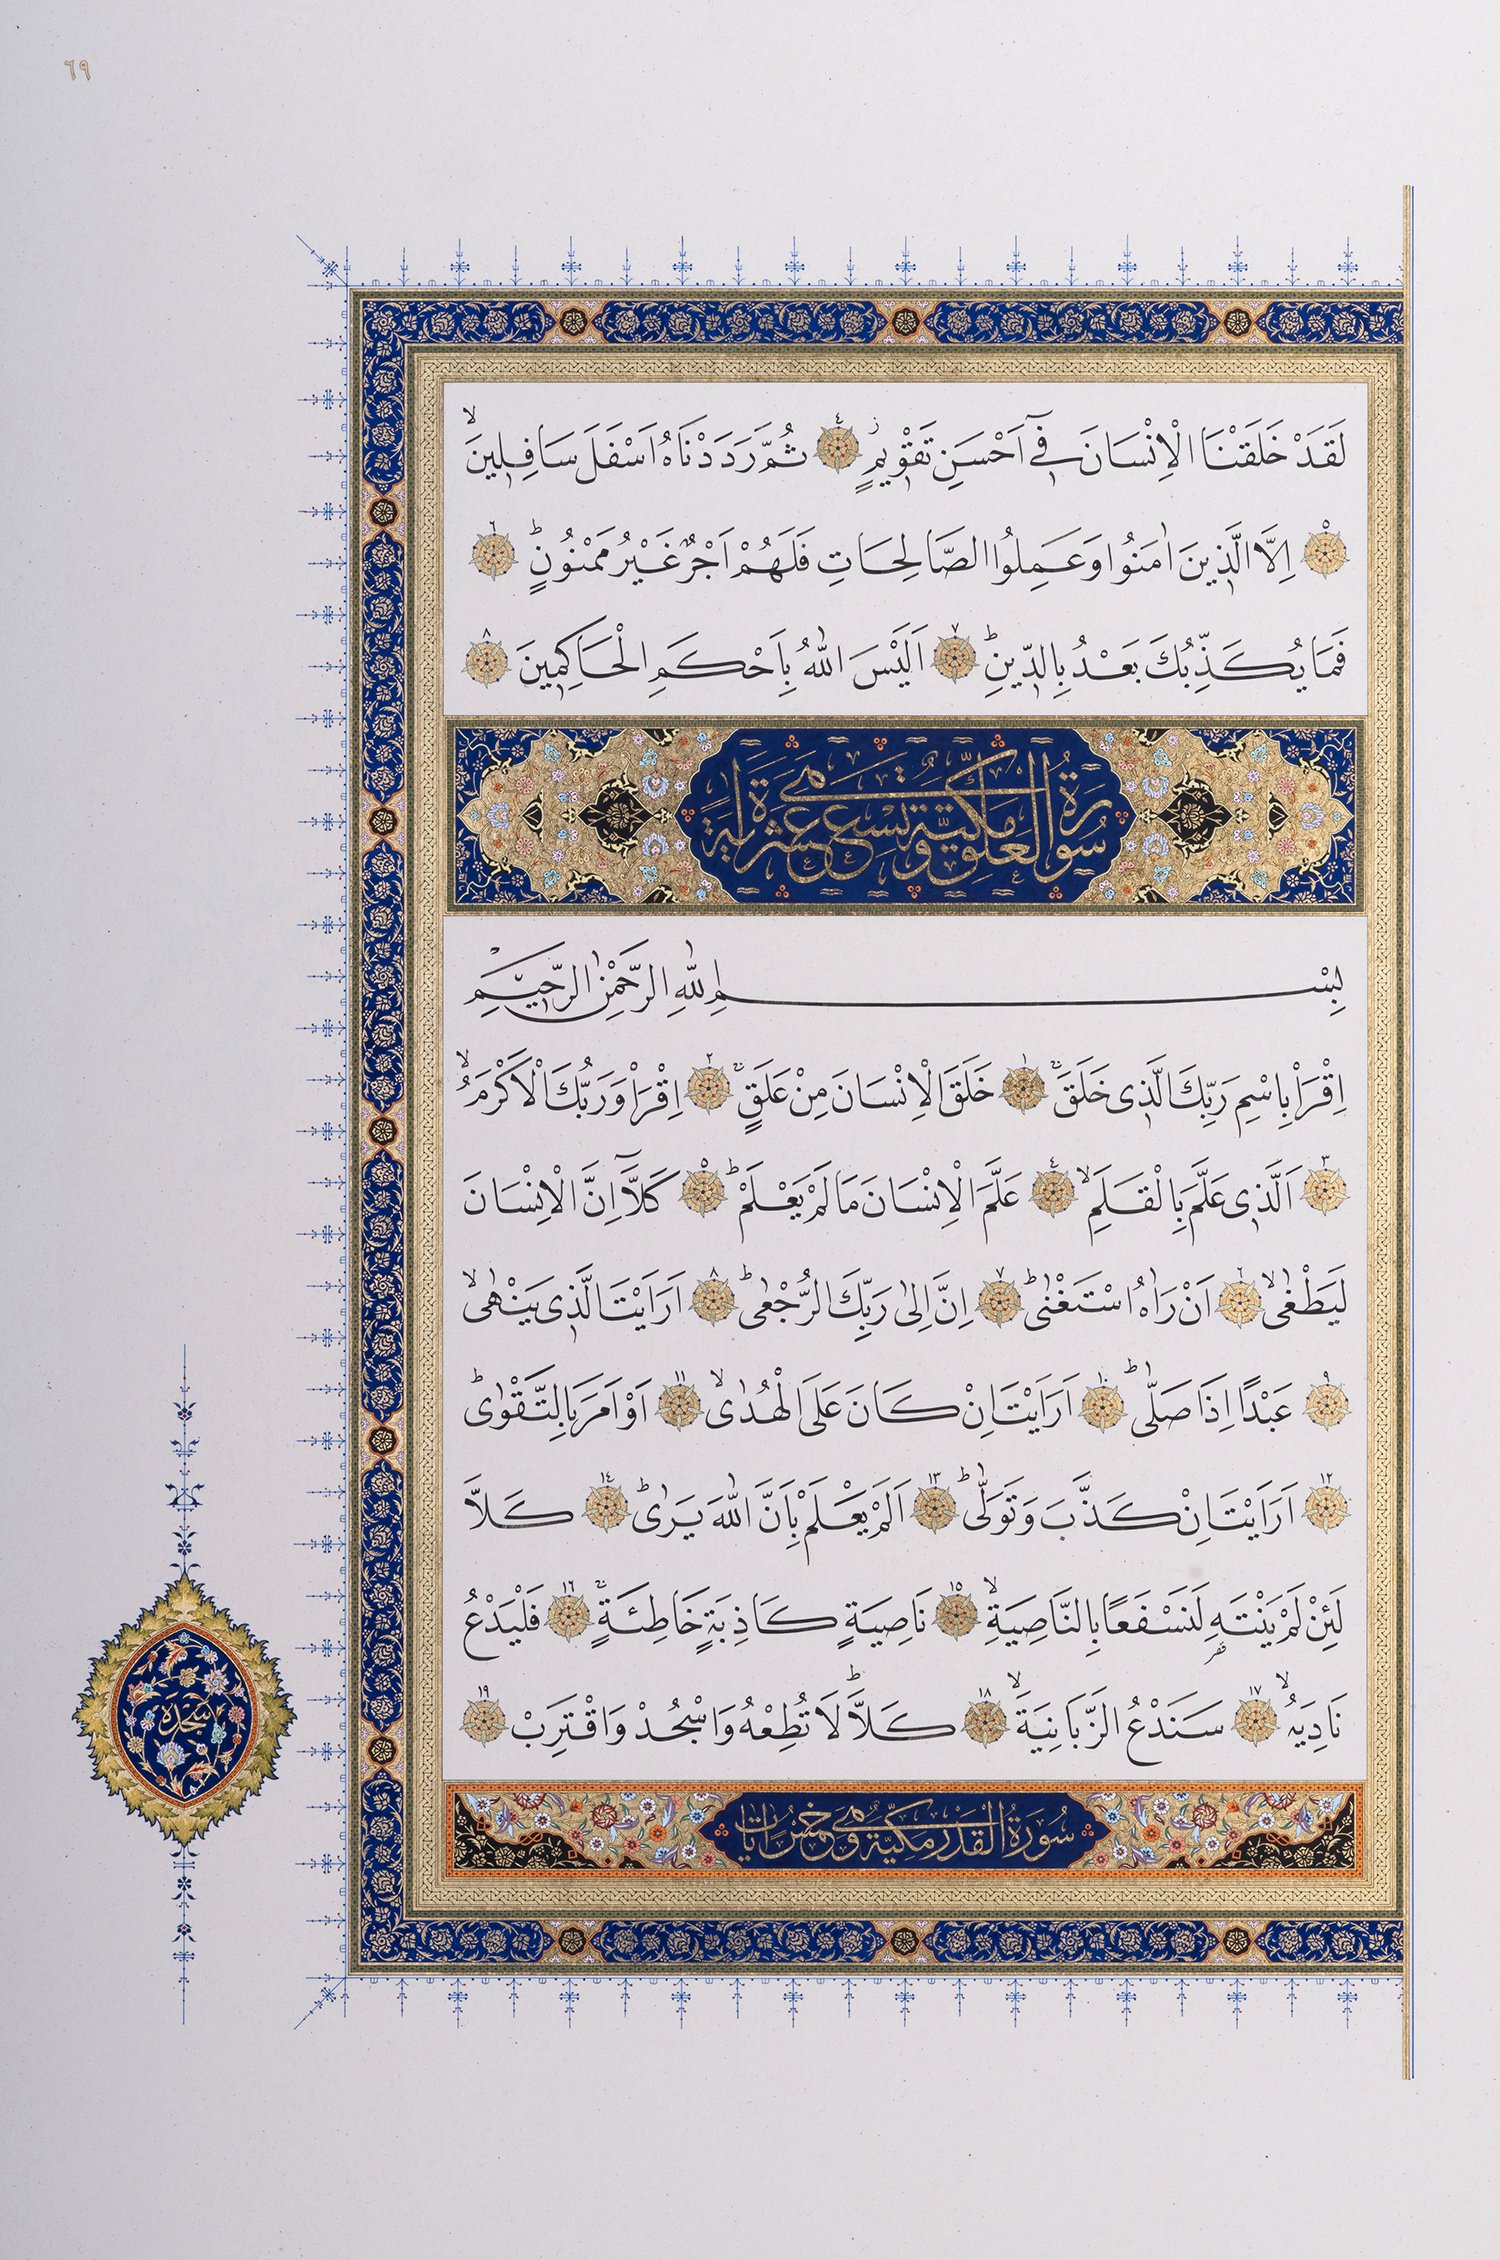 ٦٩
لَقَدْ خَلَقْنَا الْاِنْسَانَ فٖٓى اَحْسَنِ تَقْوٖيمٍؗ ٤ ثُمَّ رَدَدْنَاهُ اَسْفَلَ سَافِلٖينَۙ
٥ اِلَّا الَّذٖينَ اٰمَنُوا وَعَمِلُوا الصَّالِحَاتِ فَلَهُمْ اَجْرٌ غَيْرُ مَمْنُونٍؕ ٦
فَمَا يُكَذِّبُكَ بَعْدُ بِالدّٖينِؕ ٧ اَلَيْسَ اللّٰهُ بِاَحْكَمِ الْحَاكِمٖينَ ٨
سُورَةُ الْعَلَقِ مَكِّيَّةٌ وَهِىَ تِسْعَ عَشْرَةَ اٰيَةً
بِسْمِ اللّٰهِ الرَّحْمٰنِ الرَّحٖيمِ
اِقْرَاْ بِاسْمِ رَبِّكَ الَّذٖى خَلَقَۚ ١ خَلَقَ الْاِنْسَانَ مِنْ عَلَقٍۚ ٢ اِقْرَاْ وَرَبُّكَ الْاَكْرَمُۙ
٣ اَلَّذٖى عَلَّمَ بِالْقَلَمِۙ ٤ عَلَّمَ الْاِنْسَانَ مَا لَمْ يَعْلَمْؕ ٥ كَلَّٓا اِنَّ الْاِنْسَانَ
لَيَطْغٰىۙ ٦ اَنْ رَاٰهُ اسْتَغْنٰىؕ ٧ اِنَّ اِلٰى رَبِّكَ الرُّجْعٰىؕ ٨ اَرَاَيْتَ الَّذٖى يَنْهٰىۙ
٩ عَبْدًا اِذَا صَلّٰىؕ ١٠ اَرَاَيْتَ اِنْ كَانَ عَلَى الْهُدٰىۙ ١١ اَوْ اَمَرَ بِالتَّقْوٰىؕ
١٢ اَرَاَيْتَ اِنْ كَذَّبَ وَتَوَلّٰىؕ ١٣ اَلَمْ يَعْلَمْ بِاَنَّ اللّٰهَ يَرٰىؕ ١٤ كَلَّا
لَئِنْ لَمْ يَنْتَهِ لَنَسْفَعًا بِالنَّاصِيَةِۙ ١٥ نَاصِيَةٍ كَاذِبَةٍ خَاطِئَةٍۚ ١٦ فَلْيَدْعُ
نَادِيَهُۙ ١٧ سَنَدْعُ الزَّبَانِيَةَۙ ١٨ كَلَّاؕ لَا تُطِعْهُ وَاسْجُدْ وَاقْتَرِبْ ١٩
سجده
سُورَةُ الْقَدْرِ مَكِّيَّةٌ وَهِىَ خَمْسُ اٰيَاتٍ